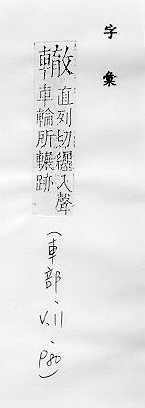 字彙
轍
直列切纏入聲
車輪所輾跡
(車部、V.11、P80)